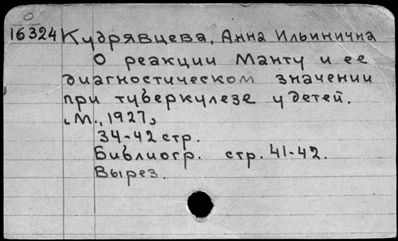 16324 Кудрявцева, Анна Ильинична
О реакции Манту и ее
диагностическом значении
при туберкулезе у детей.
[М., 1927]
34-42 стр.
Библиогр. стр. 41-42.
Вырез.